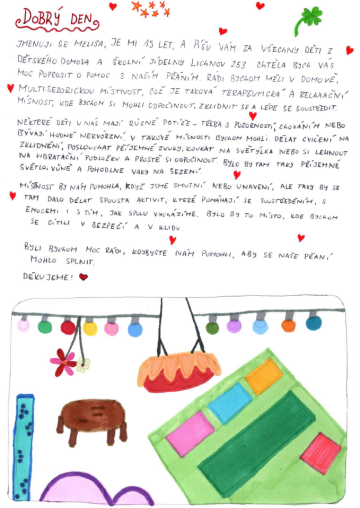 DOBRÝ DEN
JMENUJI SE MELISA, JE MI 15 LET, A PÍŠU VÁM ZA VŠECHNY DĚTI Z
DĚTSKÉHO DOMOVA A ŠKOLNÍ JÍDELNY LICHNOV 253 CHTĚLA BYCH VÁS
MOC POPROSIT O POMOC S NAŠÍM PŘÁNÍM. RÁDI BYCHOM MĚLI V DOMOVĚ,
MULTISENZORICKOU MÍSTNOST, COŽ JE TAKOVÁ TERAPEUTICKÁ A RELAXAČNÍ
MÍSTNOST, KDE BYCHOM SI MOHLI ODPOČINOUT, ZKLIDNIT SE A LÉPE SE SOUSTŘEDIT.
NĚKTERÉ DĚTI U NÁS MAJÍ RŮZNÉ POTÍŽE - TŘEBA S POZORNOSTÍ, CHOVÁNÍM NEBO
BÝVAJÍ HODNĚ NERVÓZNÍ. V TAKOVÉ MÍSTNOSTI BYCHOM MOHLI DĚLAT CVIČENÍ NA
ZKLIDNĚNÍ, POSLOUCHAT PŘÍJEMNÉ ZVUKY, KOUKAT NA SVĚTÝLKA NEBO SI LEHNOUT
NA VIBRAČNÍ PODLOŽKU A PROSTĚ SI ODPOČINOUT. BYLO BY TAM TAKY PŘÍJEMNÉ
SVĚTLO, VŮNĚ A POHODLNÉ VAKY NA SEZENÍ
MÍSTNOST BY NÁM POMOHLA, KDYŽ JSME SMUTNÍ NEBO UNAVENÍ, ALE TAKY BY SE
TAM DALO DĚLAT SPOUSTA AKTIVIT, KTERÉ POMÁHAJÍ SE SOUSTŘEDĚNÍM, S
EMOCEMI I S TÍM, JAK SPOLU VYCHÁZÍME. BYLO BY TO MÍSTO, KDE BYCHOM
SE CÍTILI V BEZPEČÍ A V KLIDU.
BYLI BYCHOM MOC RÁDI, KDYBYSTE NÁM POMOHLI, ABY SE NAŠE PŘÁNÍ
MOHLO SPLNIT.
DĚKUJEME!